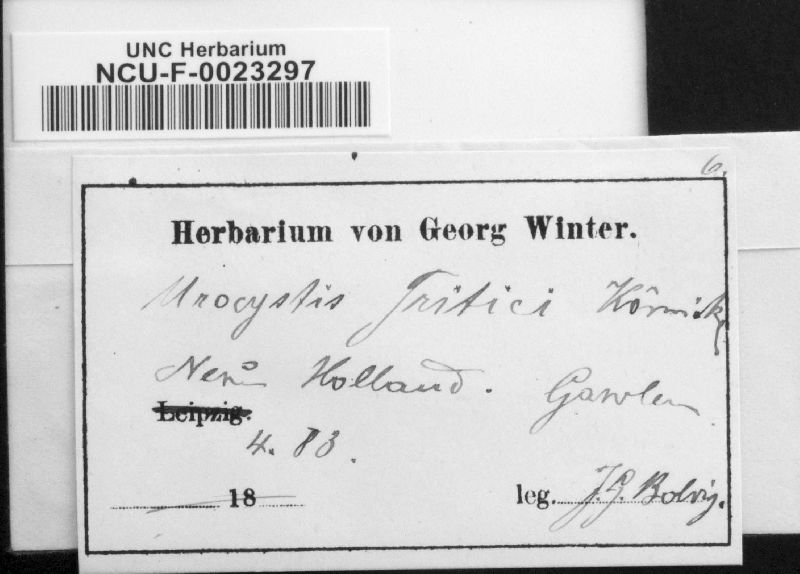 UNC Herbarium
NCU-F-0023297
6.
Herbarium von Georg Winter.
Urocystis Tritici Körnicke
Neu Holland. Gawler
Leipzig.
4. 83.
18
leg. J. G.